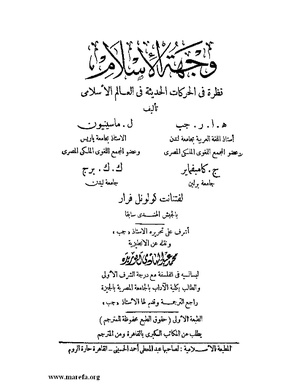 وجهة الإسلام
نظرة فى الحركات الحديثة فى العالم الأسلامى
تأليف
ه. ا. ر. جب
ل. ماسينيون
أستاذ اللغة العربية بجامعة لندن
الاستاذ بجامعة باريس
وعضو المجمع اللغوى الملكى المصرى
وعضو المجمع اللغوى الملكى المصرى
ج. كامبفماير
ك. ك. برج
جامعة برلين
جامعة ليدن
لفتنانت كولونل فرار
بالجيش الهندى سابقا
أشرف على تحريره الاستاذ « جب »
ونقله عن الانجليزية
محمد عبد الهادى أبو ريده
ليسانسيه فى الفلسفة مع درجة الشرف الاولى
والطالب بكلية الآداب بالجامعة المصرية بالجيزة
راجع الترجمة وقدم لها الاستاذ « جب »
الطبعة الاولى ( حقوق الطبع محفوظة للمترجم )
يطلب من المكاتب الكبرى بالقاهرة ومن المترجم
المطبعة الاسلامية : لصاحبها عبد المعطى أحمد الحسينى - القاهرة حارة الروم
www.marefa.org